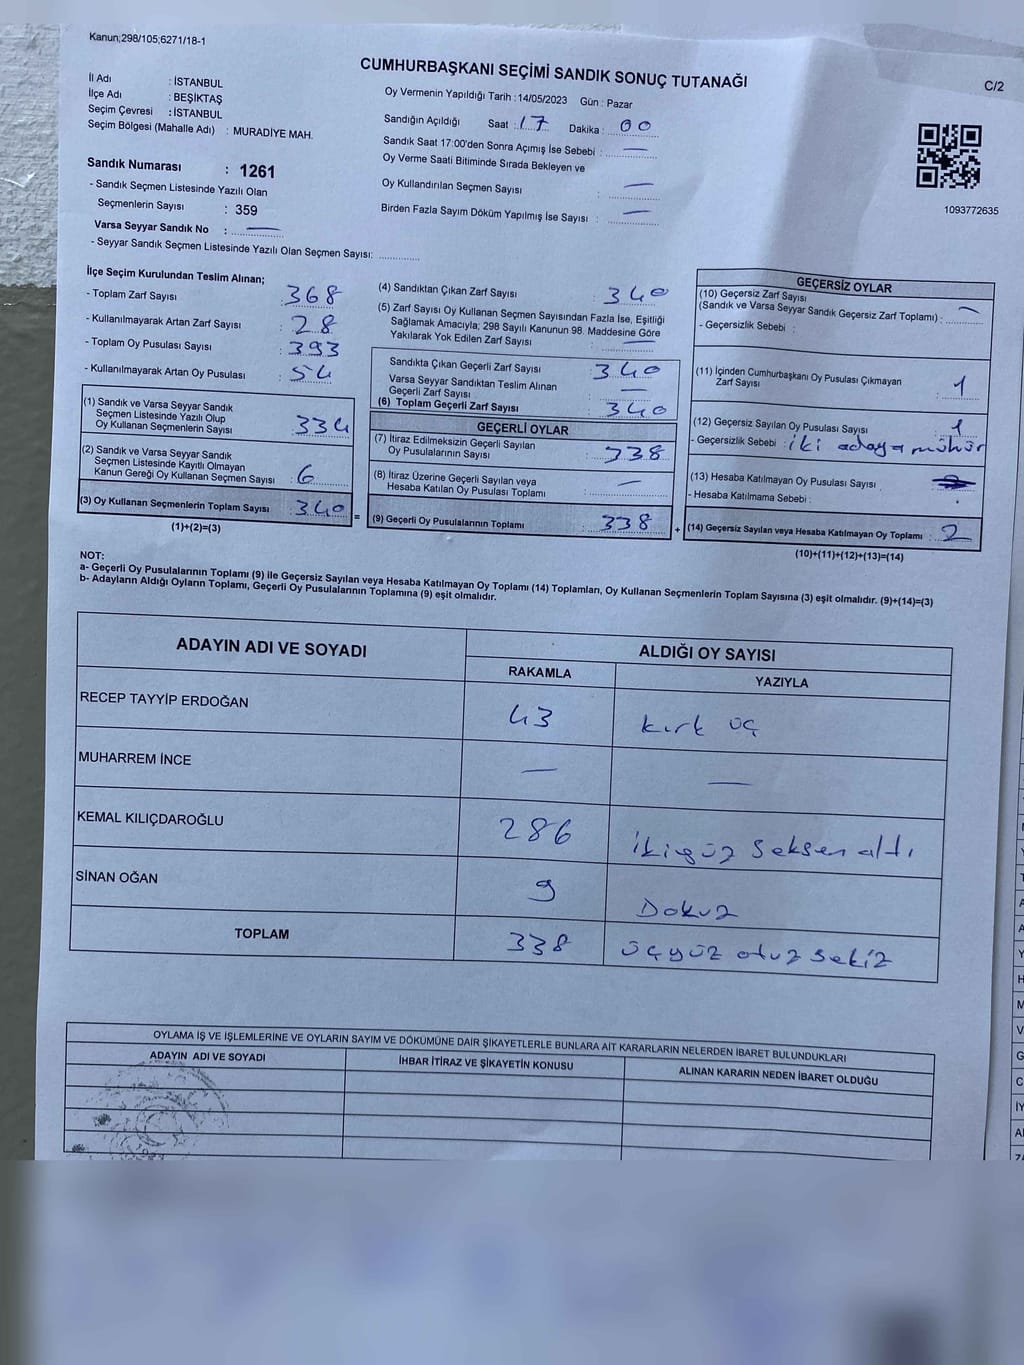 Kanun;298/105;6271/18-1
CUMHURBAŞKANI SEÇİMİ SANDIK SONUÇ TUTANAĞI
C/2
İl Adı : İSTANBUL
İlçe Adı : BEŞİKTAŞ
Seçim Çevresi : İSTANBUL
Seçim Bölgesi (Mahalle Adı) : MURADİYE MAH.
Sandık Numarası : 1261
- Sandık Seçmen Listesinde Yazılı Olan
Seçmenlerin Sayısı : 359
Varsa Seyyar Sandık No : —
- Seyyar Sandık Seçmen Listesinde Yazılı Olan Seçmen Sayısı:
Oy Vermenin Yapıldığı Tarih : 14/05/2023 Gün : Pazar
Sandığın Açıldığı Saat : 17 Dakika : 00
Sandık Saat 17:00'den Sonra Açımış İse Sebebi : —
Oy Verme Saati Bitiminde Sırada Bekleyen ve
Oy Kullandırılan Seçmen Sayısı : —
Birden Fazla Sayım Döküm Yapılmış İse Sayısı : —
1093772635
İlçe Seçim Kurulundan Teslim Alınan;
- Toplam Zarf Sayısı : 368
- Kullanılmayarak Artan Zarf Sayısı : 28
- Toplam Oy Pusulası Sayısı : 393
- Kullanılmayarak Artan Oy Pusulası : 54
(1) Sandık ve Varsa Seyyar Sandık
Seçmen Listesinde Yazılı Olup
Oy Kullanan Seçmenlerin Sayısı : 334
(2) Sandık ve Varsa Seyyar Sandık
Seçmen Listesinde Kayıtlı Olmayan
Kanun Gereği Oy Kullanan Seçmen Sayısı : 6
(3) Oy Kullanan Seçmenlerin Toplam Sayısı : 340
(1)+(2)=(3)
=
(4) Sandıktan Çıkan Zarf Sayısı : 340
(5) Zarf Sayısı Oy Kullanan Seçmen Sayısından Fazla İse, Eşitliği
Sağlamak Amacıyla; 298 Sayılı Kanunun 98. Maddesine Göre
Yakılarak Yok Edilen Zarf Sayısı : —
Sandıkta Çıkan Geçerli Zarf Sayısı : 340
Varsa Seyyar Sandıktan Teslim Alınan
Geçerli Zarf Sayısı : —
(6) Toplam Geçerli Zarf Sayısı : 340
GEÇERLİ OYLAR
(7) İtiraz Edilmeksizin Geçerli Sayılan
Oy Pusulalarının Sayısı : 338
(8) İtiraz Üzerine Geçerli Sayılan veya
Hesaba Katılan Oy Pusulası Toplamı : —
(9) Geçerli Oy Pusulalarının Toplamı : 338
+
GEÇERSİZ OYLAR
(10) Geçersiz Zarf Sayısı
(Sandık ve Varsa Seyyar Sandık Geçersiz Zarf Toplamı) : —
- Geçersizlik Sebebi :
(11) İçinden Cumhurbaşkanı Oy Pusulası Çıkmayan
Zarf Sayısı : 1
(12) Geçersiz Sayılan Oy Pusulası Sayısı : 1
- Geçersizlik Sebebi : iki adaya mühür
(13) Hesaba Katılmayan Oy Pusulası Sayısı :
- Hesaba Katılmama Sebebi :
(14) Geçersiz Sayılan veya Hesaba Katılmayan Oy Toplamı : 2
(10)+(11)+(12)+(13)=(14)
NOT:
a- Geçerli Oy Pusulalarının Toplamı (9) ile Geçersiz Sayılan veya Hesaba Katılmayan Oy Toplamı (14) Toplamları, Oy Kullanan Seçmenlerin Toplam Sayısına (3) eşit olmalıdır. (9)+(14)=(3)
b- Adayların Aldığı Oyların Toplamı, Geçerli Oy Pusulalarının Toplamına (9) eşit olmalıdır.
ADAYIN ADI VE SOYADI ALDIĞI OY SAYISI
RAKAMLA YAZIYLA
RECEP TAYYİP ERDOĞAN 43 kırk üç
MUHARREM İNCE — —
KEMAL KILIÇDAROĞLU 286 ikiyüz seksen altı
SİNAN OĞAN 9 Dokuz
TOPLAM 338 üçyüz otuz sekiz
OYLAMA İŞ VE İŞLEMLERİNE VE OYLARIN SAYIM VE DÖKÜMÜNE DAİR ŞİKAYETLERLE BUNLARA AİT KARARLARIN NELERDEN İBARET BULUNDUKLARI
ADAYIN ADI VE SOYADI İHBAR İTİRAZ VE ŞİKAYETİN KONUSU ALINAN KARARIN NEDEN İBARET OLDUĞU